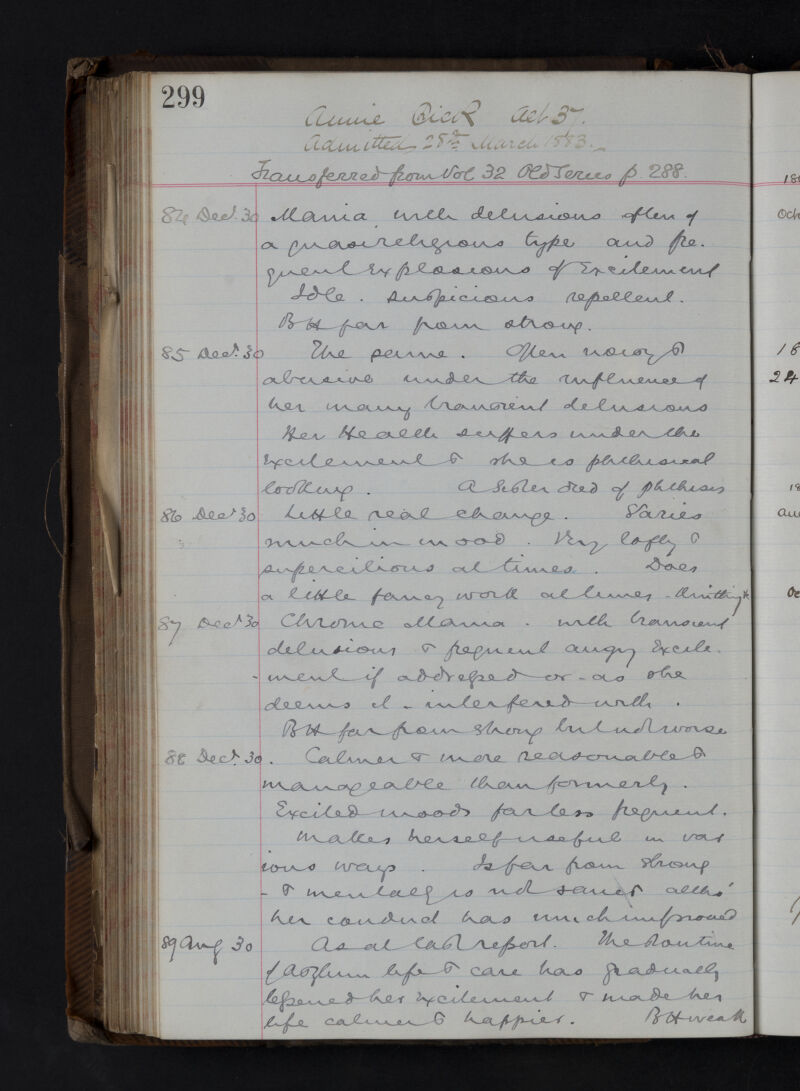 299
Annie Dick Aet 37.
Admitted 28th March 1883.
Transferred from Vol 32 Old Series p. 288.
84 Decr. 30 Mania with delusions often of
a quasireligious type and fre.
quent explosions of Excitement
Idle. Suspicious repellent.
BH far from strong.
85 Decr. 30 The same. Often noisy &
abusive under the influence of
her many transient delusions
Her Health suffers under the
excitement & she is phthisical
looking. A Sister died of phthisis
86 Decr 30 Little real change. Varies
much in mood. Very lofty &
supercilious at times. Does
a little fancy work at times - Knitting &c
87 Decr 30 Chronic Mania. with transient
delusions & frequent angry Excite.
-ment if addressed or - as she
deems it - interfered with.
BH far from strong but not worse
88 Decr. 30. Calmer & more reasonable &
manageable than formerly.
Excited moods far less frequent.
Makes herself useful in var
ious ways. Is far from strong
- & mentally is not sane altho'
her conduct has much improved
89 Aug 30 As at last report. The Routine
of Asylum life & care has gradually
lessened her excitement & made her
life calmer & happier. BH weak
188
Oct
18
24
18
Au
Oc